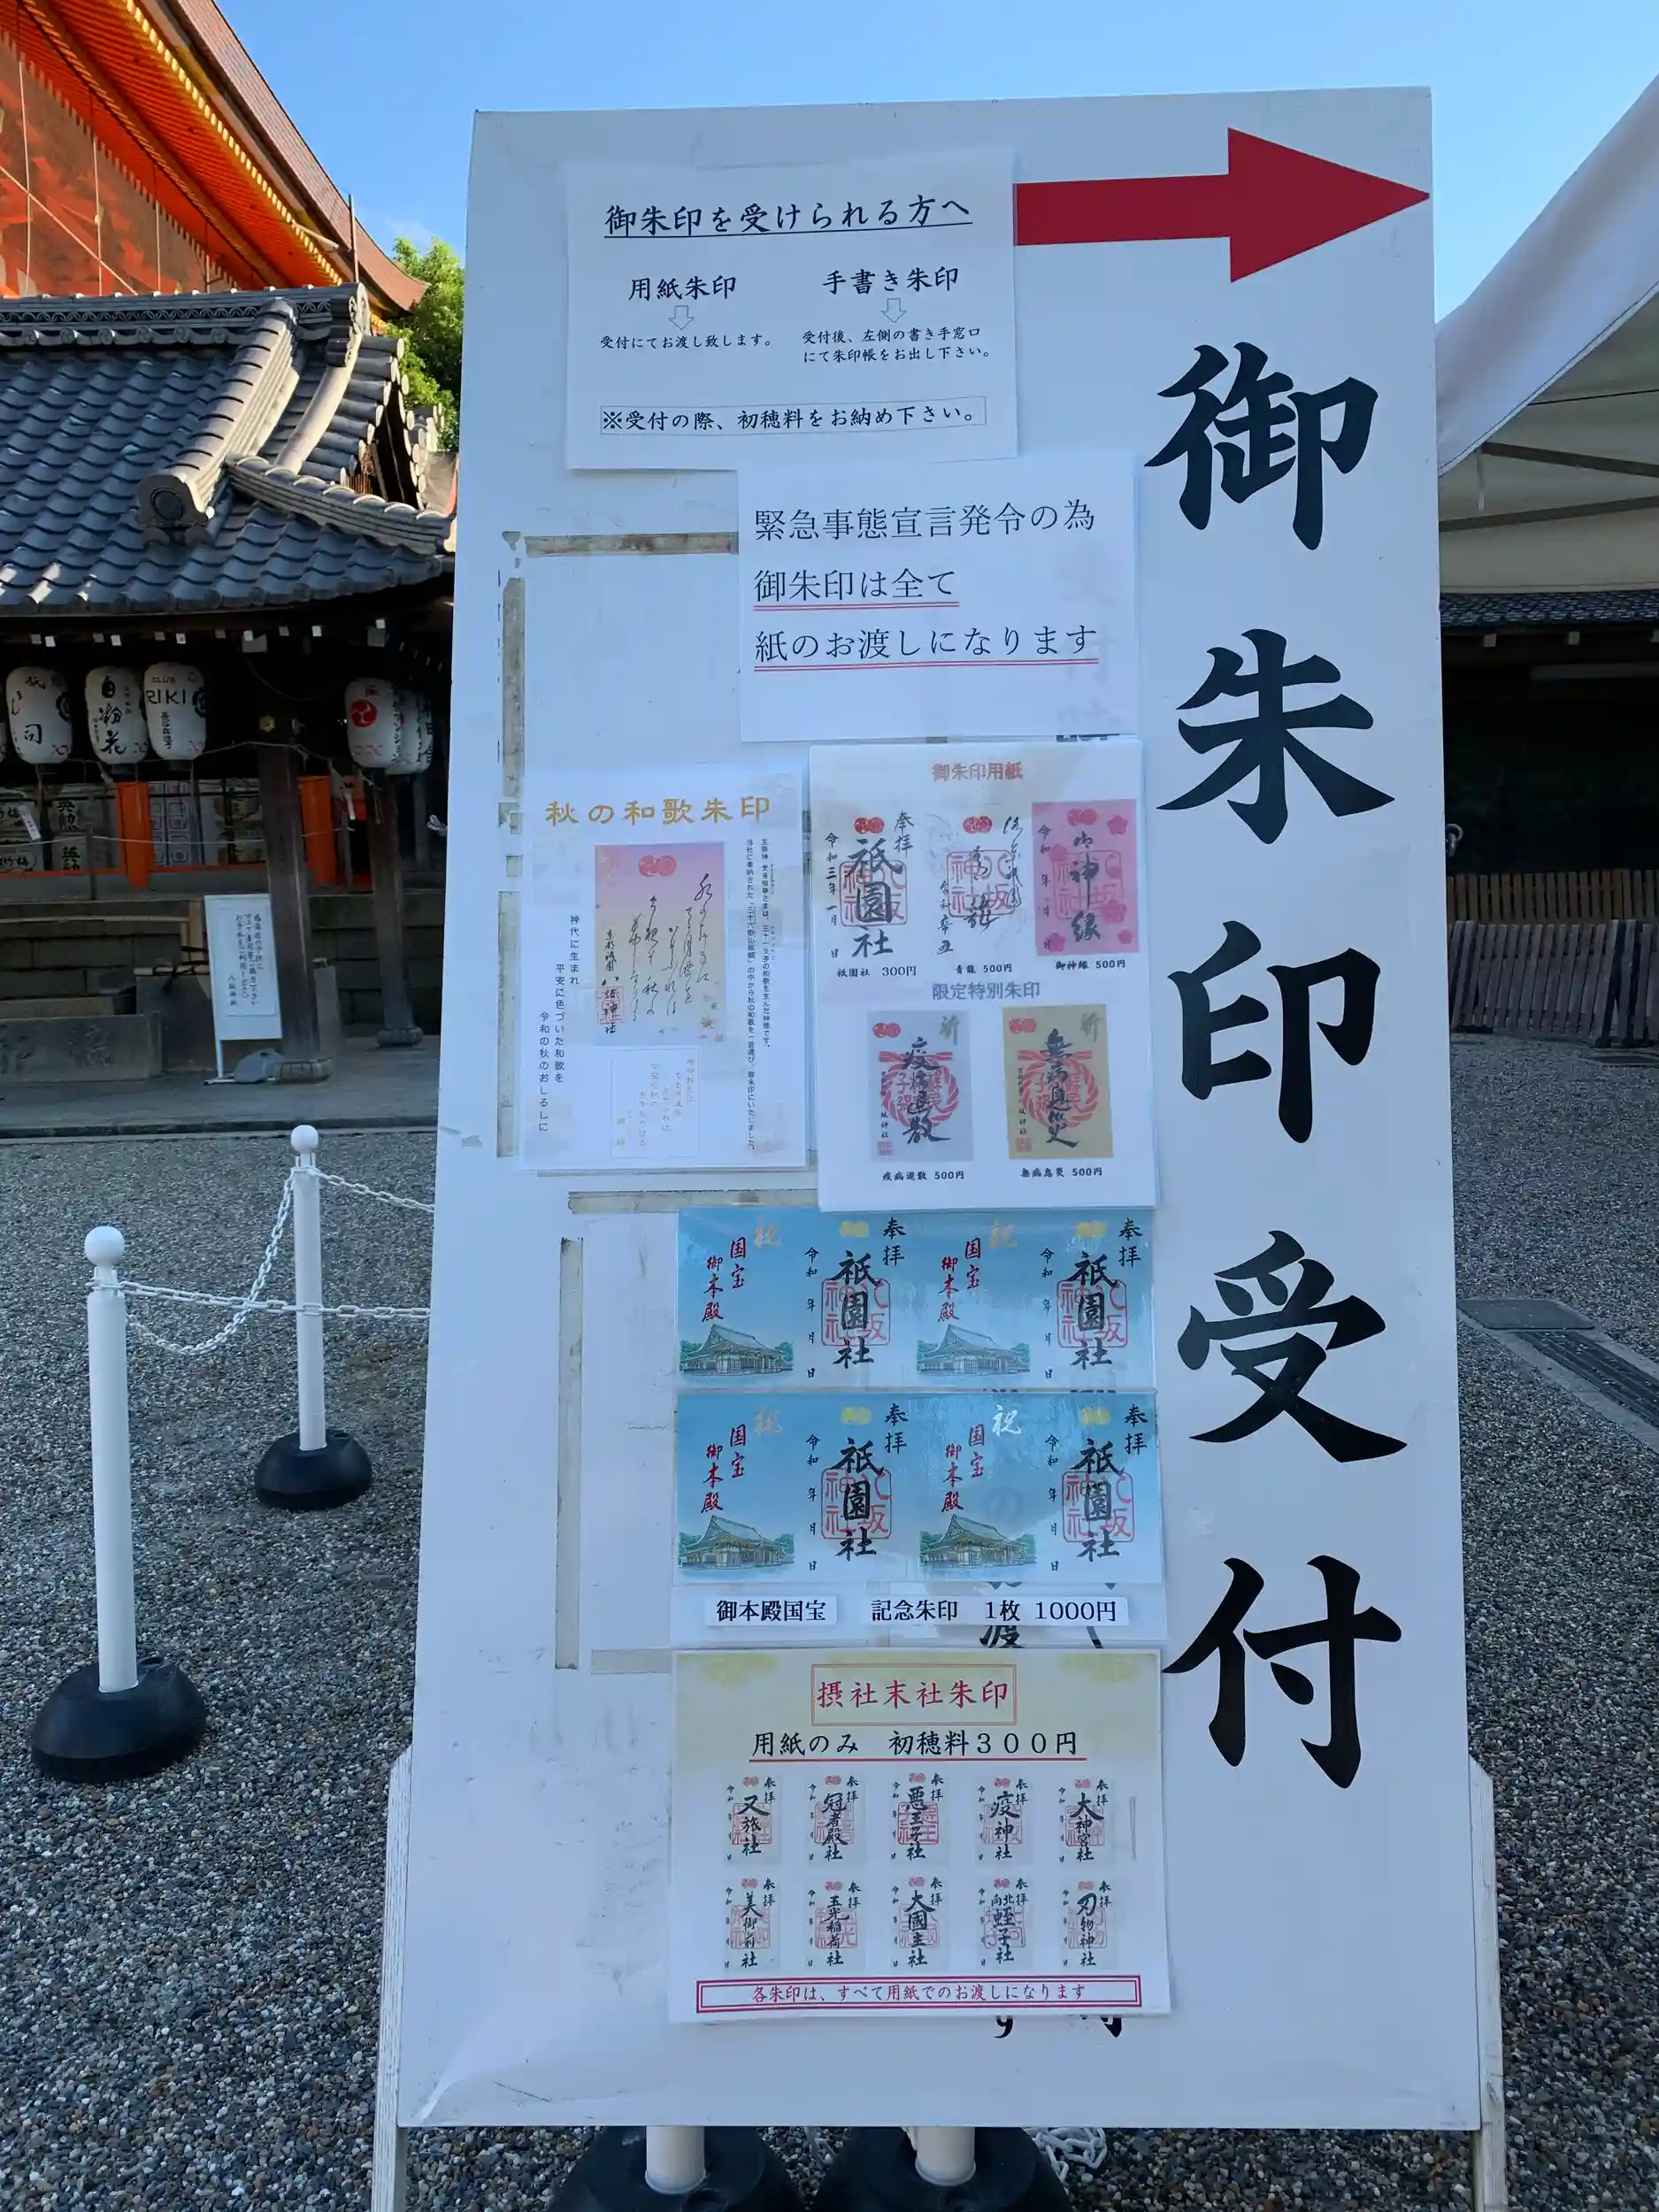 御朱印受付
御朱印を受けられる方へ
用紙朱印
受付にてお渡し致します。
手書き朱印
受付後、左側の書き手窓口
にて朱印帳をお出し下さい。
※受付の際、初穂料をお納め下さい。
緊急事態宣言発令の為
御朱印は全て
紙のお渡しになります
秋の和歌朱印
神代に生まれ
平安に色づいた和歌を
令和の秋のおしるしに
御朱印用紙
奉拝
祇園社
令和三年一月 日
祇園社 300円
青龍 500円
御神縁
令和 年 月 日
御神縁 500円
限定特別朱印
祈
疫病退散
疫病退散 500円
祈
無病息災
無病息災 500円
奉拝
祇園社
令和 年 月 日
祝
国宝
御本殿
奉拝
祇園社
令和 年 月 日
祝
国宝
御本殿
奉拝
祇園社
令和 年 月 日
祝
国宝
御本殿
奉拝
祇園社
令和 年 月 日
祝
国宝
御本殿
御本殿国宝 記念朱印 1枚 1000円
摂社末社朱印
用紙のみ 初穂料300円
又旅社
冠者殿社
悪王子社
疫神社
大神宮社
美御前社
玉光稲荷社
大國主社
北向蛭子社
刃物神社
各朱印は、すべて用紙でのお渡しになります
白粉花
CLUB
RIKI